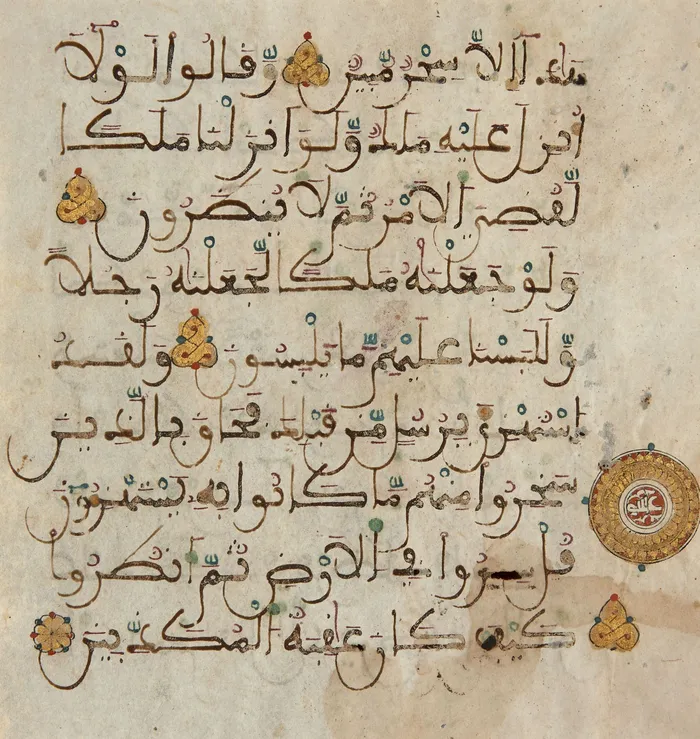 هذا إلا سحر مبين وقالوا لولا
أنزل عليه ملك ولو أنزلنا ملكا
لقضي الأمر ثم لا ينظرون
ولو جعلنه ملكا لجعلنه رجلا
وللبسنا عليهم ما يلبسون ولقد
استهزئ برسل من قبلك فحاق بالذين
سخروا منهم ما كانوا به يستهزءون
قل سيروا في الأرض ثم انظروا
كيف كان عقبة المكذبين